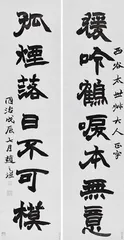 西谷太世叔大人正字
吟鶴唳本無意
孤煙落日不可模
同治戊辰 月趙之謙